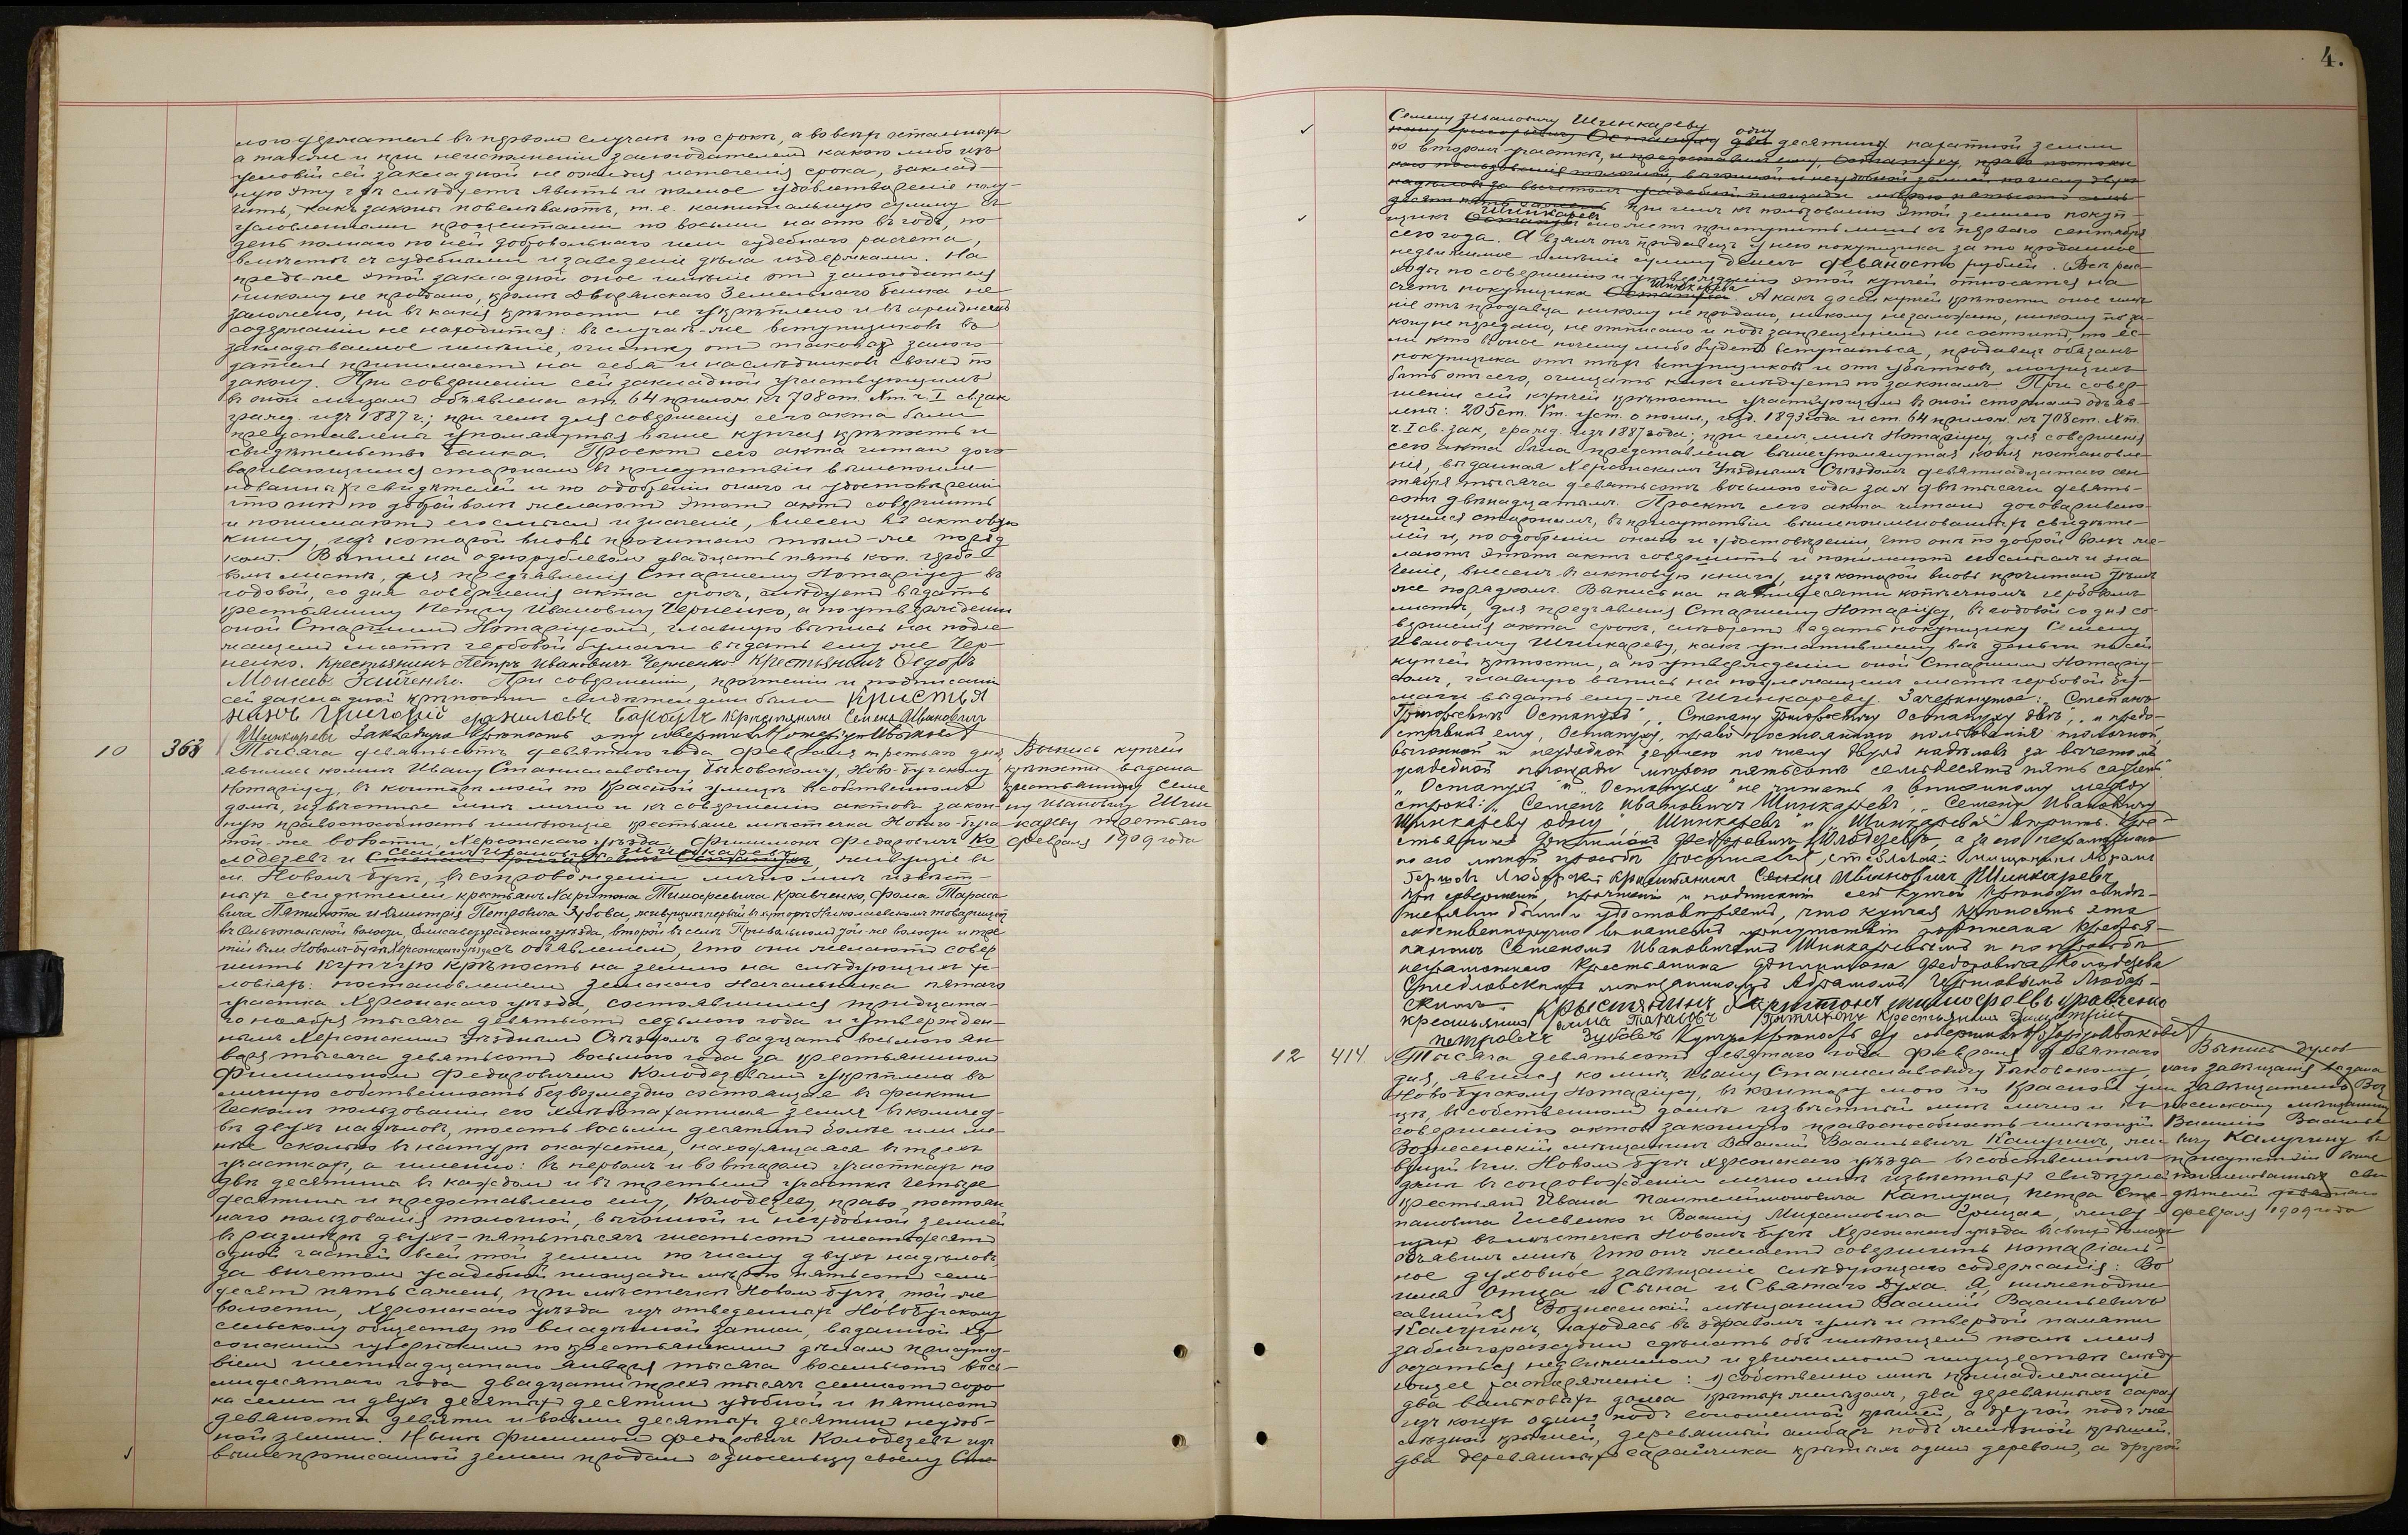 мого держатель въ первомъ случаѣ по срокѣ, а во всѣхъ остальныхъ
а также и при неисполненіи залогодателемъ какого либо изъ
условій сей закладной не ожидая истеченія срока, заклад-
ную эту гдѣ слѣдуетъ явить и полное удовлетвореніе полу-
чить, какъ законы повелѣваютъ, т. е. капитальную сумму съ
условленными процентами по восьми на сто въ годъ, по
день полнаго по ней добровольнаго или судебнаго расчета,
вмѣстѣ съ судебными и за веденіе дѣла издержками. На
предь-же этой закладной оное имѣніе отъ залогодателя
никому не продано, кромѣ Дворянскаго Земельнаго банка не
заложено, ни въ какія крѣпости не укрѣплено и въ арендномъ
содержаніи не находится: въ случаѣ-же вступщиковъ въ
закладываемое имѣніе, очистку отъ таковыхъ залого-
датель принимаетъ на себя и наслѣдниковъ своихъ по
закону. При совершеніи сей закладной участвующимъ
въ оной лицамъ объявлена ст. 64 прилож. къ 708 ст. Хт. ч. I св. зак
гражд. изд 1887 г.; при чемъ для совершенія сего акта были
представлены упомянутыя выше купчая крѣпость и
свидѣтельство банка. Проектъ сего акта читанъ дого
варивающимся сторонамъ въ присутствіи вышепоиме-
нованныхъ свидѣтелей и по одобреніи онаго и удостовѣреніи
что они по доброй волѣ желаютъ этотъ актъ совершить
и понимаютъ его смыслъ и значеніе, внесенъ въ актовую
книгу, изъ которой вновь прочитанъ тѣмъ-же поряд
комъ. Выпись на однорублевомъ двадцать пять коп. гербо
вомъ листѣ, для предъявленія Старшему Нотаріусу въ
годовой, со дня совершенія акта срокъ, слѣдуетъ выдать
крестьянину Петру Ивановичу Черненко, а по утвержденіи
оной Старшимъ Нотаріусомъ, главную выпись на подле
жащемъ листѣ гербовой бумаги выдать ему же Чер-
ненко. Крестьянинъ Петръ Ивановичъ Черненко Крестьянинъ Ѳедоръ
Моисеевъ Зайченко. При совершеніи, прочтеніи и подписаніи
сей закладной крѣпости свидѣтелями были Кристья
нинъ Григорий Крестьянинъ Семенъ Ивановичъ
Шинкаревъ Закладную крѣпость эту совершилъ Нотаріусъ Быковскій
10 363 Тысяча девятьсотъ девятаго года февраля третьяго дня,
явились ко мнѣ Ивану Станиславовичу Быковскому, Ново-Бугскому
Нотаріусу, въ контору мою по Красной улицѣ въ собственномъ
домѣ, извѣстные мнѣ лично и къ совершенію актовъ закон-
ную правоспособность имѣющіе крестьяне мѣстечка Новаго-Буга
той-же волости, Херсонскаго уѣзда, Филимонъ Федоровичъ Ко
Семенъ Ивановичъ Шинкаревъ
лодезевъ и Степанъ Григорьевичъ Остапухъ, живущіе въ
м. Новомъ Бугѣ, въ сопровожденіи лично мнѣ извѣст-
ныхъ свидѣтелей, крестьянъ Харитона Тимофеевича Кравченко, Фомы Тараса-
вича Пятихата и Дмитрія Петровича Зубова, живущихъ первый въ хуторѣ Николаевскомъ товариществ
въ Ольгопольской волости, Елисаветградскаго уѣзда, второй въ селѣ Привольномъ той-же волости и тре
тій въ м. Новомъ-Бугѣ Херсонскаго уѣзда съ объявленіемъ, что они желаютъ совер
шить купчую крѣпость на землю на слѣдующихъ у-
словіяхъ: постановленіемъ Земскаго Начальника пятаго
участка Херсонскаго уѣзда, состоявшимся тридцата-
го ноября тысяча девятьсотъ седьмого года и утвержден-
нымъ Херсонскимъ Уѣзднымъ Съѣздомъ двадцать восьмого ян
варя тысяча девятьсотъ восьмого года за крестьяниномъ
Филимономъ Федоровичемъ Колодезевымъ укрѣплена въ
личную собственность безвозмездно состоящая въ факти
ческомъ пользованіи его хлѣбопахатная земля въ количест-
вѣ двухъ надѣловъ, шесть восемь десятинъ болѣе или ме-
нѣе сколько въ натурѣ окажется, находящаяся въ трехъ
участкахъ, а именно: въ первомъ и во второмъ участкахъ по
двѣ десятины въ каждомъ и въ третьемъ участкѣ четыре
десятины и предоставлено ему, Колодезеву, право постоян
наго пользованія толочной, выгонной и неудобной землей
въ размѣрѣ двухъ-пятьтысячъ шестьсотъ шестьдесятъ
одной частей всей той земли по числу двухъ надѣловъ,
за вычетомъ усадебной площади мѣрою пятьсотъ семь-
десятъ пять саженъ, при мѣстечкѣ Новомъ-Бугѣ, той-же
волости, Херсонскаго уѣзда изъ отведенныхъ Новобугскому
сельскому обществу по владѣнной записи, выданной Хер
сонскимъ губернскимъ по крестьянскимъ дѣламъ присутст-
віемъ шестнадцатаго января тысяча восемьсотъ вось-
мидесятаго года двадцати трехъ тысячъ семисотъ соро
ка семи и двухъ десятыхъ десятинъ удобной и пятисотъ
девяноста девяти и восьми десятыхъ десятинъ неудоб-
ной земли. Нынѣ Филимонъ Федоровичъ Колодезевъ изъ
вышеописанной земли продалъ односельцу своему Сте
Выпись купчей
крѣпости выдана
крестьянину Семе
ну Ивановичу Шин
кареву третьяго
февраля 1909 года
4.
Семену Ивановичу Шинкареву одну
пану Григорьевичу Остапуху двѣ десятину пахатной земли
во второмъ участкѣ, и предоставилъ ему, Остапуху, право постоян
наго пользованія толочной, выгонной и неудобной землей по числу двухъ
надѣловъ за вычетомъ усадебной площади мѣрою пятьсотъ семь
десятъ пять саженъ при чемъ къ пользованію этой землею покуп-
Шинкаревъ
щикъ Остапухъ можетъ приступить лишь съ перваго сентября
сего года. А взялъ онъ продавецъ у него покупщика за то проданное
недвижимое имѣніе сумму денегъ девяносто рублей. Всѣ рас-
ходы по совершенію и утвержденію этой купчей относятся на
Шинкарева
счетъ покупщика Остапуха. А какъ до сей купчей крѣпости оное имѣ
ніе отъ продавца никому не продано, никому не заложено, никому ни за-
кону не передано, не отписано и подъ запрещеніемъ не состоитъ, то ес-
ли кто въ оное почему либо будетъ вступаться, продавецъ обязанъ
покупщика отъ тѣхъ вступщиковъ и отъ убытковъ, могущихъ
быть отъ сего, очищать какъ слѣдуетъ по законамъ. При совер-
шеніи сей купчей крѣпости участвующимъ въ оной сторонамъ объяв-
лены: 205 ст. Vт. уст. о пошл., изд. 1893 года и ст. 64 прилож. къ 708 ст. Хт.
ч. I св. зак, гражд. изд 1887 года; при чемъ мнѣ Нотаріусу, для совершенія
сего акта была представлена вышеупомянутая копія постановле-
нія, выданная Херсонскимъ Уѣзднымъ Съѣздомъ девятнадцатаго сен-
тября тысяча девятьсотъ восьмого года за № двѣ тысячи девять-
сотъ двѣнадцатымъ. Проектъ сего акта читанъ договариваю-
щимся сторонамъ, въ присутствіи вышепоименованныхъ свидѣте-
лей и, по одобреніи онаго и удостовѣреніи, что они по доброй волѣ же-
лаютъ этотъ актъ совершить и понимаютъ его смыслъ и зна-
ченіе, внесенъ въ актовую книгу, изъ которой вновь прочитанъ тѣмъ
же порядкомъ. Выпись на пятидесяти копѣечномъ гербовомъ
листѣ, для предъявленія Старшему Нотаріусу, въ годовой со дня со-
вершенія акта срокъ, слѣдуетъ выдать покупщику Семену
Ивановичу Шинкареву, какъ уплатившему всѣ деньги по сей
купчей крѣпости, а по утвержденіи оной Старшимъ Нотаріу-
сомъ, главную выпись на подлежащемъ листѣ гербовой бу-
маги выдать ему-же Шинкареву. Зачеркнутое: Степанъ
Григорьевичъ Остапухъ", Степану Григорьевичу Остапуху двѣ", и предо-
ставилъ ему, Остапуху, право постояннаго пользованія толочной
выгонной и неудобной землею по числу двухъ надѣловъ за вычетомъ
усадебной площади мѣрою пятьсотъ семьдесятъ пять саженъ"
"Остапухъ" и "Остапуха" не читать а вписанному между
строкъ: "Семенъ Ивановичъ Шинкаревъ", "Семену Ивановичу
Шинкареву одну" "Шинкаревъ" и "Шинкарева" вѣрить. Кре-
стьянинъ Филимонъ Федоровичъ Колодезевъ, а за его неграмотного
по его личной просьбѣ росписался, мещанинъ Абрамъ
Герцовъ Любарскій Крестьянинъ Семенъ Ивановичъ Шинкаревъ
При совершеніи, прочтеніи и подписаніи сей купчей крѣпости свидѣ-
телями были и удостовѣряемъ, что купчая крѣпость эта
собственноручно въ нашемъ присутствіи подписана Крестья-
ниномъ Семеномъ Ивановичемъ Шинкаревымъ и по просьбѣ
неграмотного Крестьянина Филимона Федоровича Колодезева
мещаниномъ Абрамомъ Герцовымъ Любар-
скимъ. Крыстянинъ Харитонъ Тимофеевъ Кравченко
крестьянинъ Фома Тарасовъ Пятихатъ Крестьянинъ Димитрий
Петровичъ Зубовъ Купчую крѣпость эту совершилъ Нотаріусъ Быковскій
12 414 Тысяча девятьсотъ девятаго года февраля девятаго
дня, явился ко мнѣ Ивану Станиславовичу Быковскому,
Ново-Бугскому Нотаріусу, въ контору мою по Красной ули
цѣ, въ собственномъ домѣ извѣстный мнѣ лично и къ
совершенію актовъ законную правоспособность имѣющій
Вознесенскій мѣщанинъ Василій Васильевичъ Калугинъ, жи-
вущій въ м. Новомъ Бугѣ Херсонскаго уѣзда въ собственномъ
домѣ въ сопровожденіи лично мнѣ извѣстныхъ свидѣтелей
крестьянъ Ивана Пантелеймоновича Каплуна, Петра Сте-
пановича Шевенко и Василія Михайловича Грицая, живу-
щихъ въ мѣстечкѣ Новомъ Бугѣ Херсонскаго уѣзда въ своихъ домахъ
объявилъ мнѣ, что онъ желаетъ совершить нотаріаль-
ное духовное завѣщаніе слѣдующаго содержанія: Во
имя Отца и Сына и Святаго Духа. Я, нижеподпи
савшійся Вознесенскій мѣщанинъ Василій Васильевичъ
Калугинъ, находясь въ здравомъ умѣ и твердой памяти
заблагоразсудилъ сдѣлать объ имѣющемъ послѣ меня
остаться недвижимомъ и движимомъ имуществѣ слѣду
ющее распоряженіе: 1) собственно мнѣ принадлежащіе
два вальковыхъ дома крытыхъ желѣзомъ, два деревянныхъ сарая
изъ коихъ одинъ подъ соломенной крышей, а другой подъ же
лѣзной крышей, деревянный амбаръ подъ желѣзной крышей,
два деревянныхъ сарайчика крытыхъ одинъ деревомъ, а другой
Выпись духов
наго завѣщанія выдана
завѣщателю Воз
несенскому мѣщанину
Василію Василье
вичу Калугину въ
присутствіи выше
поименованныхъ сви
дѣтелей девятаго
февраля 1909 года